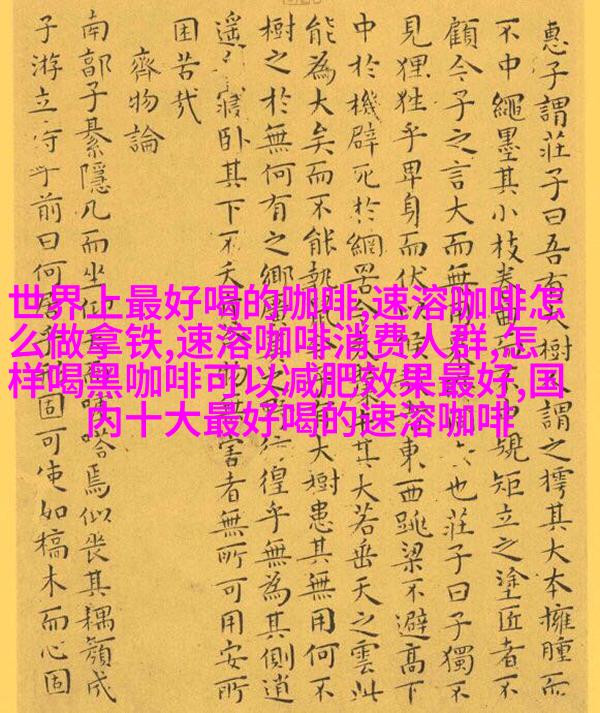 世界上最好喝的咖啡,速溶咖啡怎
么做拿铁,速溶咖啡消费人群,怎
样喝黑咖啡可以减肥效果最好,国
内十大最好喝的速溶咖啡
惠子謂莊子曰吾有大樹謂之樗其大本擁腫而
不中繩墨其小枝卷曲而不中規矩立之塗匠者不
顧今子之言大而無用也莊子曰子獨不
見狸狌乎卑身而伏東西跳梁不避高下
中於機辟死於網罟今其大若垂天之雲此
能為大矣而不能執鼠大樹患其無用何不
樹之於無何有之鄉廣野彷徨乎無為其側逍
遙寢卧其下不夭害者無所可用安所
困苦哉
齊物論
南郭子綦隱几而坐仰嗒焉似喪其耦顏成
子游立侍乎前曰何居乎固可使如槁木而心固